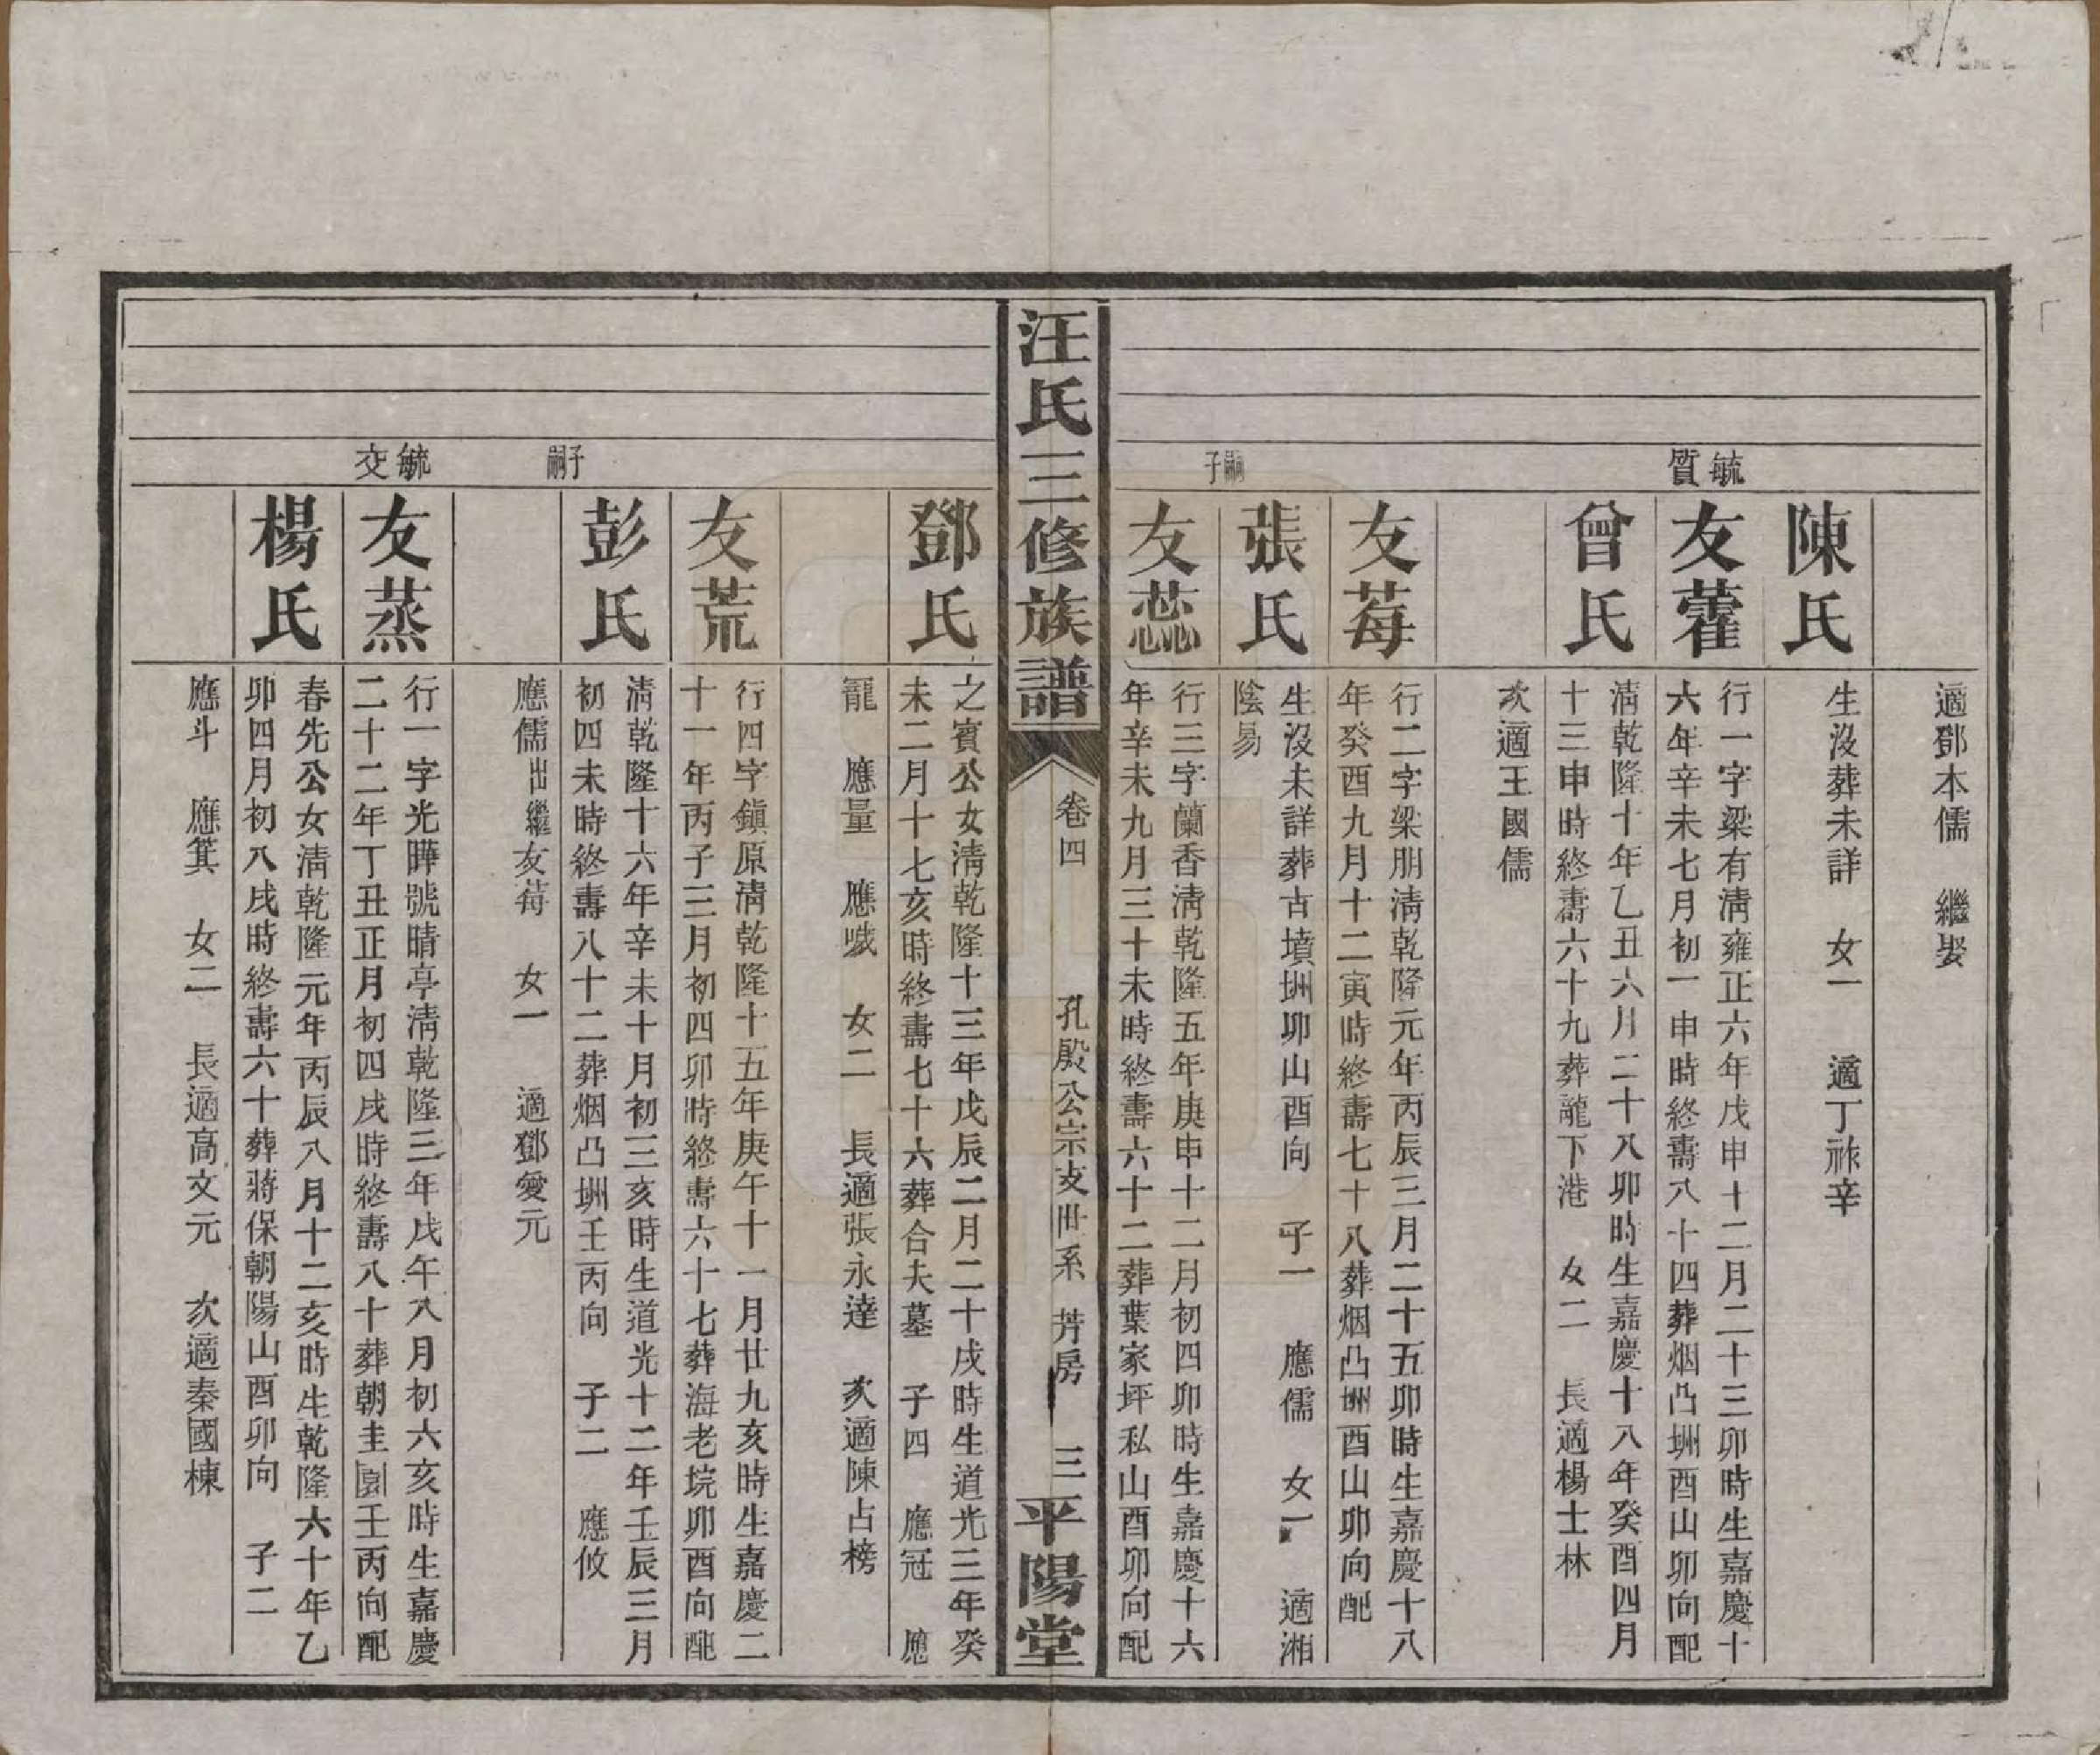 適鄧本儒　繼娶
陳氏
生沒葬未詳　女一　適丁祿辛
毓質
友藿
行一字梁有清雍正六年戊申十二月二十三卯時生嘉慶十
六年辛未七月初一申時終壽八十四葬烟凸㘭酉山卯向配
曾氏
清乾隆十年乙丑六月二十八卯時生嘉慶十八年癸酉四月
十三申時終壽六十九葬龍下港　女二　長適楊士林
次適王國儒
友莓
行二字梁朋清乾隆元年丙辰三月二十五卯時生嘉慶十八
年癸酉九月十二寅時終壽七十八葬烟凸㘭酉山卯向配
張氏
生沒未詳葬古墳㘭卯山酉向　子一　應儒　女一　適湘
陰易
嗣子
友蕊
行三字蘭香清乾隆五年庚申十二月初四卯時生嘉慶十六
年辛未九月三十未時終壽六十二葬葉家坪私山酉卯向配
汪氏三修族譜
卷四
孔殿公宗支世系　芳房
三
平陽堂
鄧氏
之賓公女清乾隆十三年戊辰二月二十戌時生道光三年癸
未二月十七亥時終壽七十六葬合夫墓　子四　應冠　應
寵　應量　應嘁　女二　長適張永達　次適陳占榜
友荒
行四字鎮原清乾隆十五年庚午十一月廿九亥時生嘉慶二
十一年丙子三月初四卯時終壽六十七葬海老垸卯酉向配
彭氏
清乾隆十六年辛未十月初三亥時生道光十二年壬辰三月
初四未時終壽八十二葬烟凸㘭壬丙向　子二　應攸
子嗣
應儒出繼友莓　女一　適鄧愛元
毓交
友蒸
行一字光曄號晴亭清乾隆三年戊午八月初六亥時生嘉慶
二十二年丁丑正月初四戌時終壽八十葬朝圭園壬丙向配
楊氏
春先公女清乾隆元年丙辰八月十二亥時生乾隆六十年乙
卯四月初八戌時終壽六十葬蔣保朝陽山酉卯向　子二
應斗　應箕　女二　長適高文元　次適秦國棟